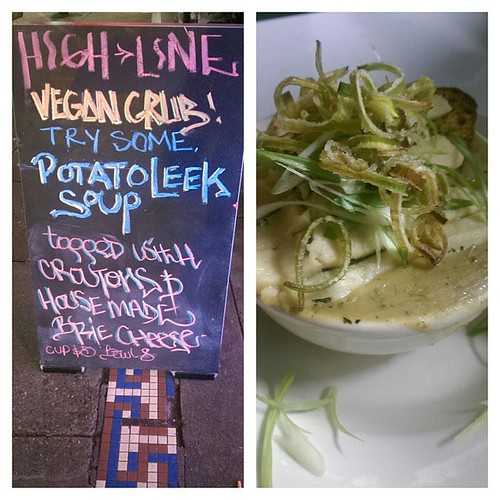 HIGH > LINE
VEGAN GRUB!
TRY SOME,
POTATO LEEK
SOUP
topped with
CROUTONS &
HOUSE MADE
BRIE CHEESE-
CUP $5 Bowl 8